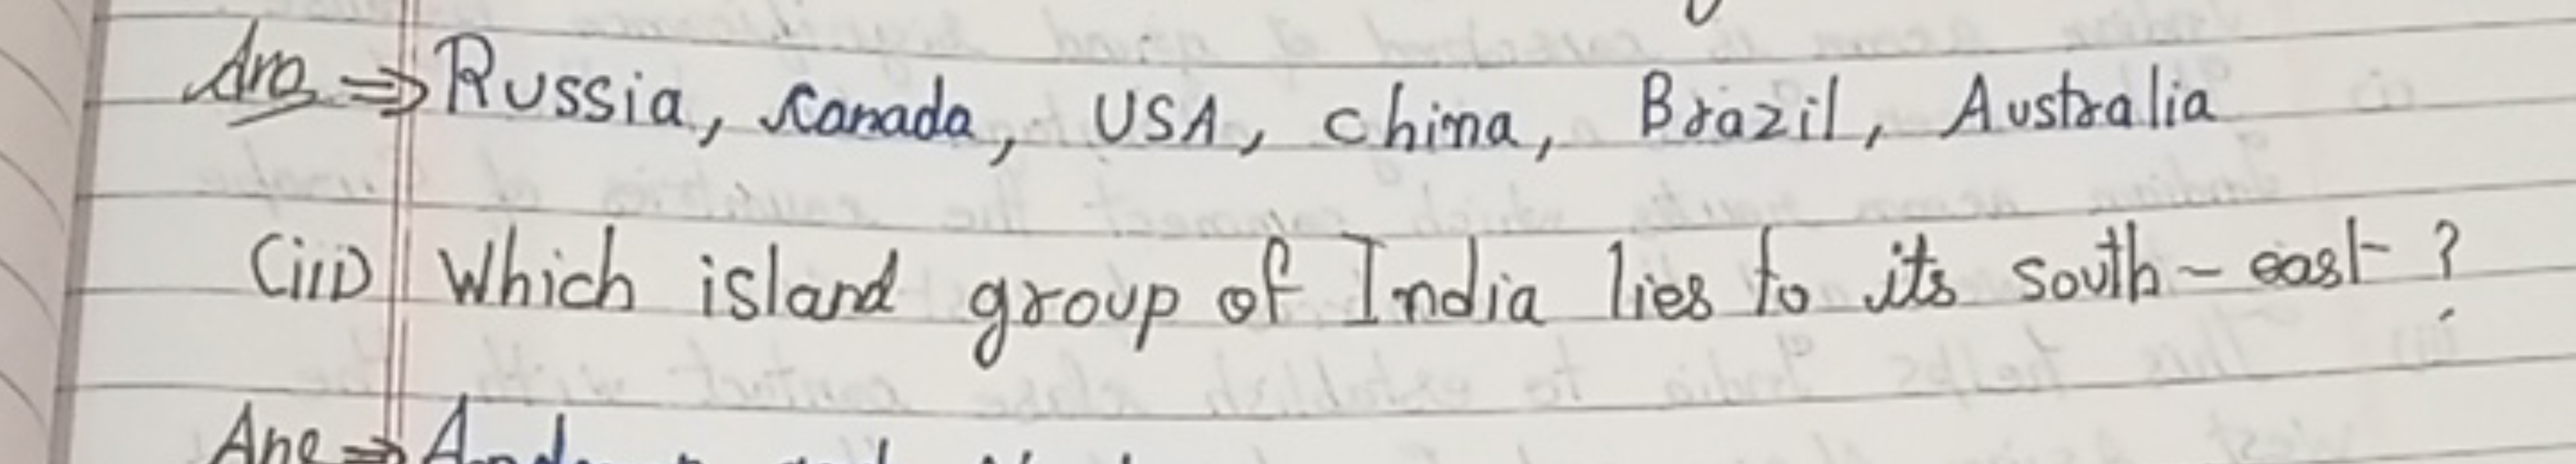 Ans ⇒ Russia, Canada, USA, china, Brazil, Australia
(iii) Which island group of India lies to its south-east?
Ans ⇒